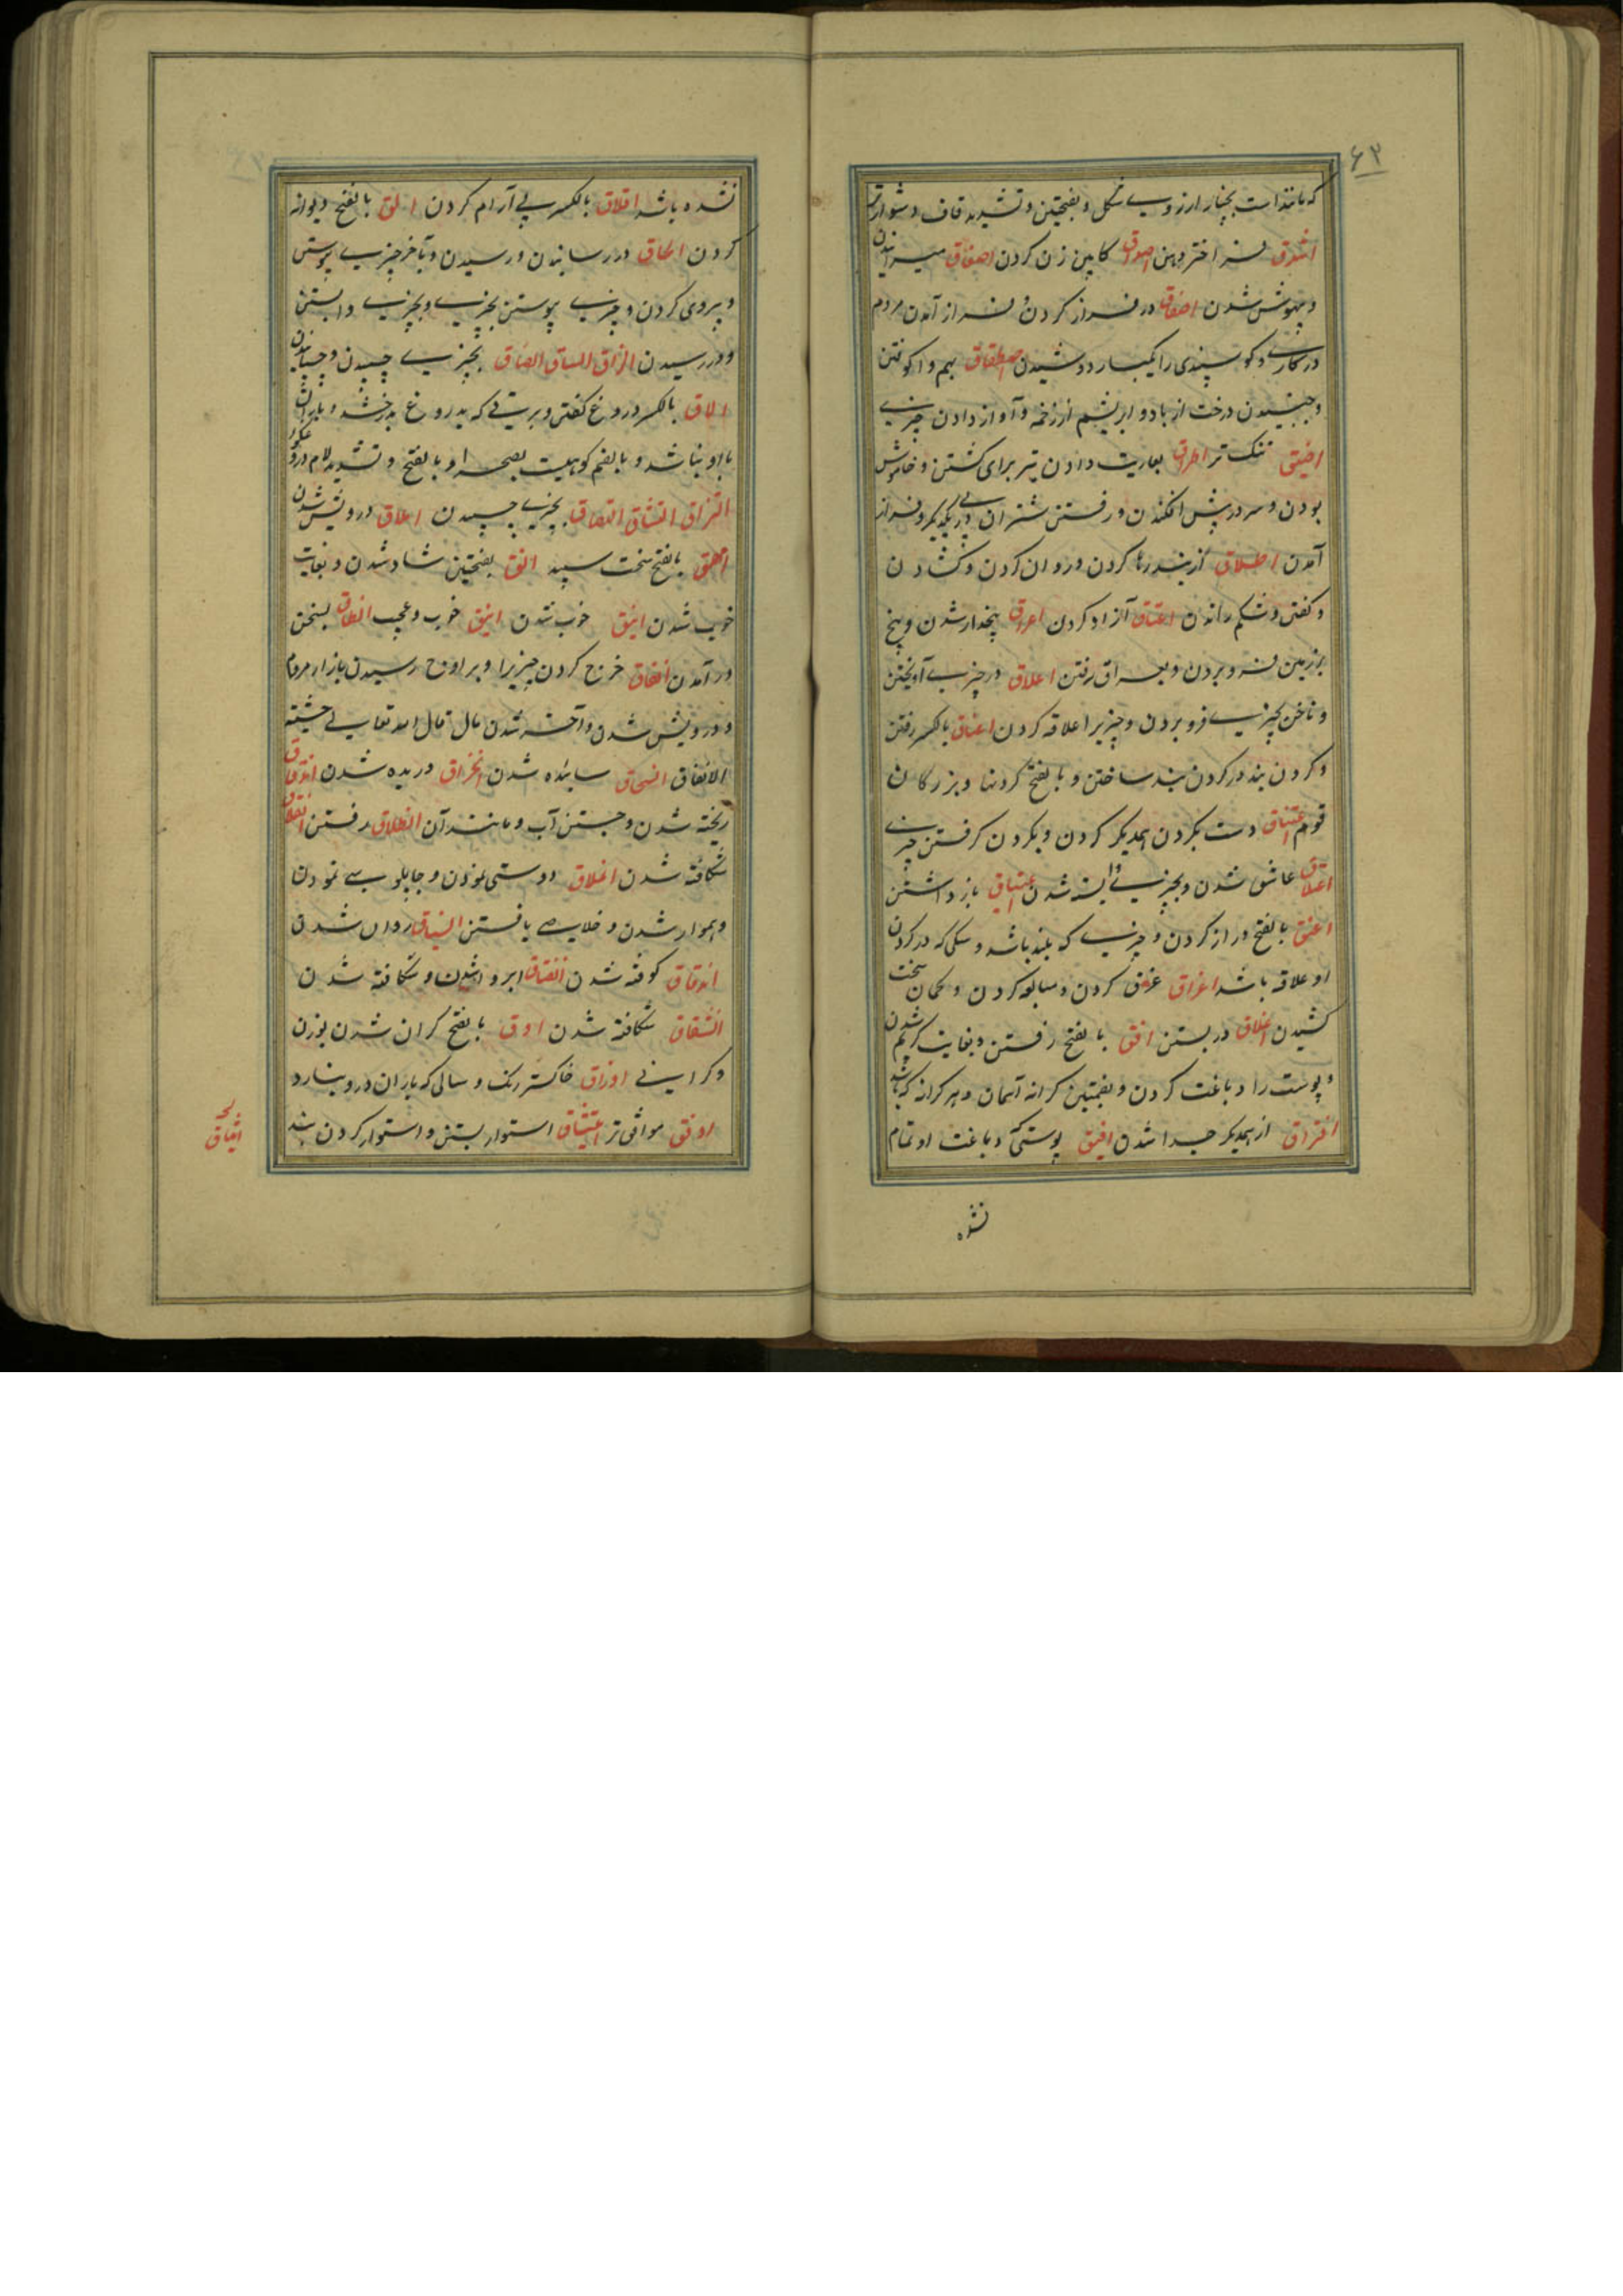 ۶۳
که مانند است بخیار ارزوی شکل و بفتحتین و تشدید قاف دشوارتر
اشدق فراختر دهن اصداق کابین زن کردن اصعاق میرانیدن
و بیهوش شدن اصفاق در فراز کردن و فراز آمدن مردم
در کاری و کوسپندی را یکبار دوشیدن اصطفاق بهم واکوفتن
و جنبیدن درخت از باد و ابریشم از زخمه و آواز دادن چیزی
اضیق تنک تر اطراق بعاریت دادن تیر برای کشتن و خاموش
بودن و سر در پیش افکندن و رفتن شتران در پی یکدیگر و فراز
آمدن اطلاق از بند رها کردن و روان کردن و کشادن
و کفتن و شکم راندن اعتاق آزاد کردن اعراق بیخدار شدن و بیخ
بزمین فرو بردن و بعراق رفتن اعلاق در چیزی آویختن
و ناخن بچیزی فرو بردن و چیزیرا علاقه کردن اعناق بالکسر رفتن
و کردن بند در کردن بند ساختن و بالفتح کردنها و بزرکان
قوم اعتناق دست بکردن همدیکر کردن و بکردن کرفتن چیزی
اعتلاق عاشق شدن و بچیزی وابسته شدن اعتیاق باز داشتن
اعنق بالفتح دراز کردن و چیزی که بلند باشد و سکی که در کردن
او علاقه باشد اغراق غرق کردن و مبالغه کردن و کمان سخت
کشیدن اغلاق در بستن افق بالفتح رفتن و بغایت کریم شدن
و پوست را دباغت کردن و بضمتین کرانه آسمان و هر کرانه که باشد
افتراق از همدیکر جدا شدن افیق پوستی که دباغت او تمام
نشده
نشده باشد اقلاق بالکسر بی آرام کردن الق بالفتح دیوانه
کردن الحاق در رسانیدن و رسیدن و بآخر چیزی پیوستن
و پیروی کردن و چیزی پیوستن بچیزی و بچیزی وابستن
و در رسیدن الزاق الساق الصاق بچیزی چسپیدن و چسپانیدن
الاق بالکسر دروغ کفتن و برقی که بدروغ بدرخشد و باران
با او نباشد و بالضم کوهیست بصحرا و بالفتح و تشدید لام دروغ کو
التزاق التساق التصاق بچیزی چسپیدن املاق درویش شدن
امهق بالفتح سخت سپید انق بفتحتین شاد شدن و بغایت
خوب شدن انیق خوب شدن انیق خوب و عجب انطاق بسخن
در آمدن انفاق خرج کردن چیزیرا و برواج رسیدن بازار مردم
و درویش شدن و آخر شدن مال قال الله تعالی خشیة
الانفاق انسحاق سائیده شدن انخراق دریده شدن اندفاق
ریخته شدن و جستن آب و مانند آن انطلاق رفتن انفلاق
شکافته شدن املاق دوستی نمودن و چاپلوسی نمودن
و هموار شدن و خلاصی یافتن انسیاق روان شدن
اندقاق کوفته شدن انفتاق ابر وا شدن و شکافته شدن
انشقاق شکافته شدن اوق بالفتح کران شدن بوزن
و کرانی اوراق خاکستر رنک و سالی که باران درو نبارد
اوفق موافق تر استیثاق استوار بستن و استوار کردن بند
ایثاق